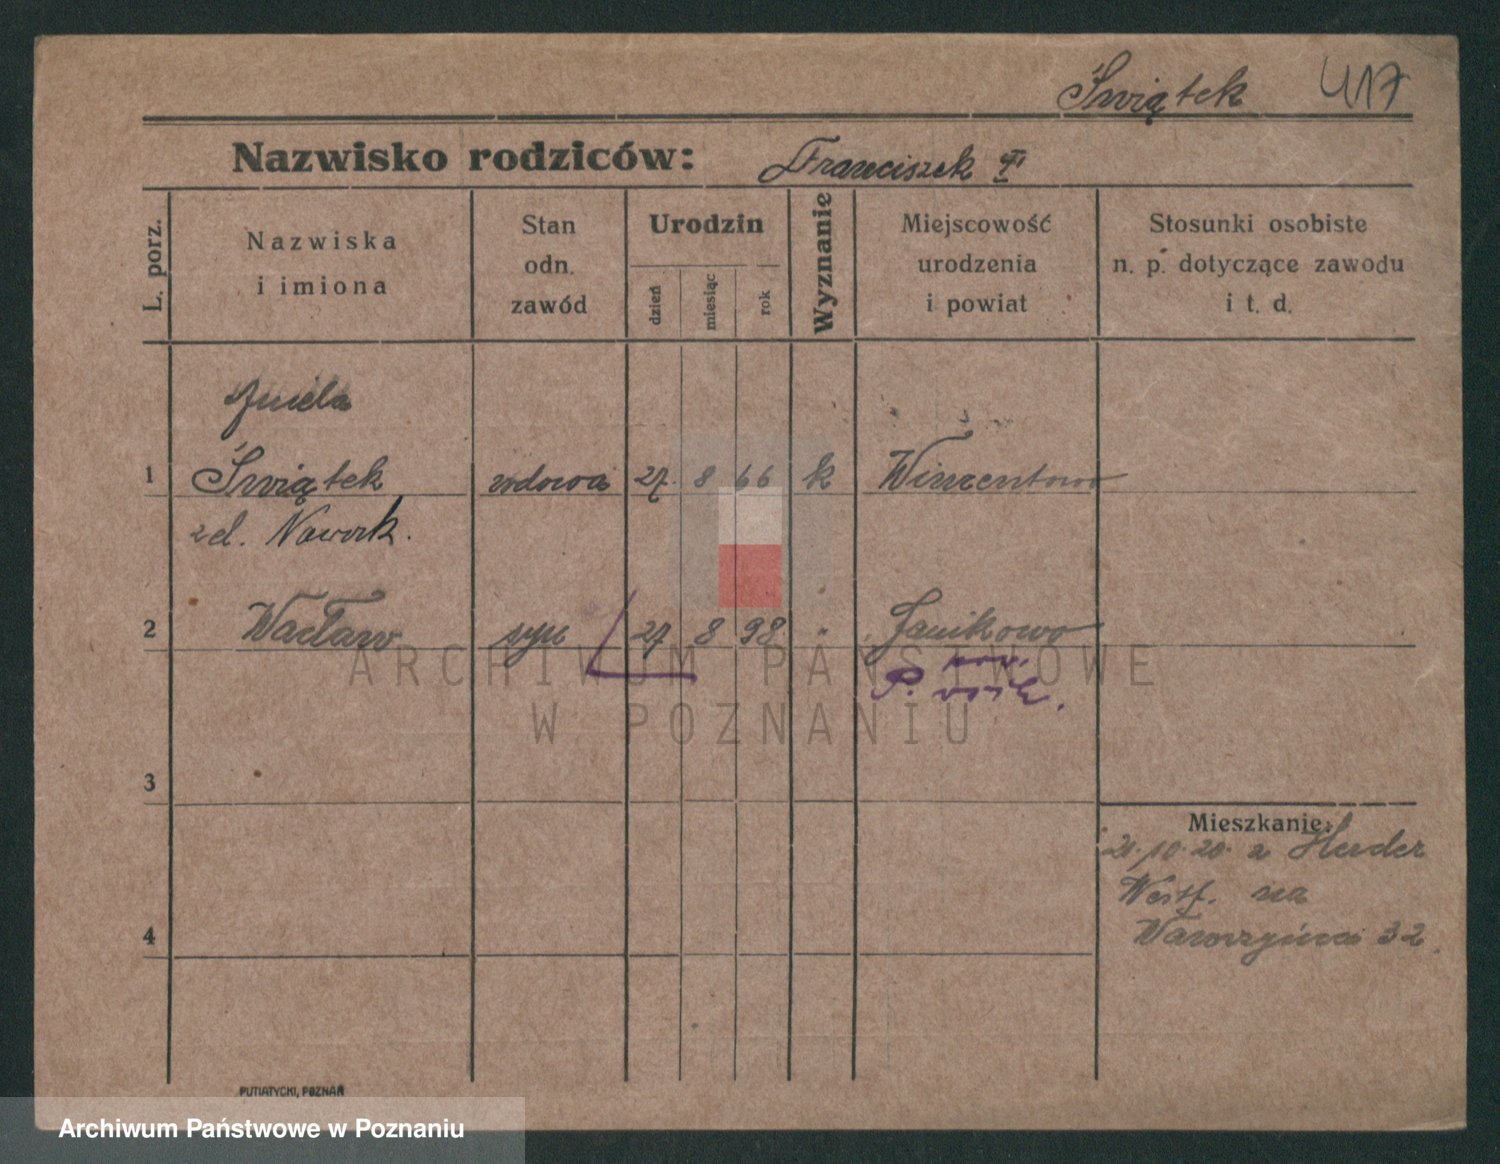 Świątek 417
Nazwisko rodziców: Franciszek
L. porz.
Nazwiska
i imiona
Stan
odn.
zawód
Urodzin
dzień
miesiąc
rok
Wyznanie
Miejscowość
urodzenia
i powiat
Stosunki osobiste
n. p. dotyczące zawodu
i t. d.
1 Świątek wdowa 27. 8 66 k Winzentowo
Nawrk.
2 Wacław syn 27 8 98 " Janikowo
ARCHIWUM PAŃSTWOWE
W POZNANIU
3
Mieszkanie:
21.10.20. z Herder
Westf. na
4 Wawrzyńca 32.
PUTIATYCKI, POZNAŃ
Archiwum Państwowe w Poznaniu